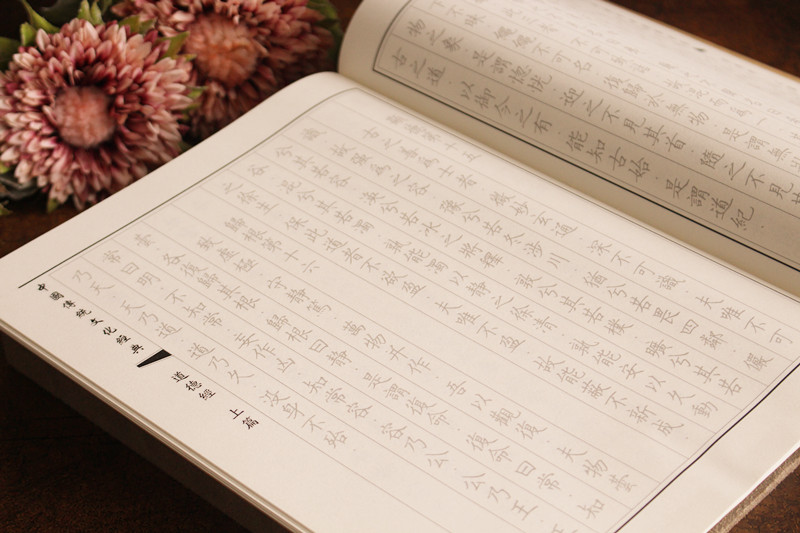 下不昧 繩繩不可名 復歸於無物 是謂無
物之象 是謂惚恍 迎之不見其首 隨之不見其
古之道 以御今之有 能知古始 是謂道紀
顯德第十五
古之善為士者 微妙玄通 深不可識 夫唯不可
識 故強為之容 豫兮若冬涉川 猶兮若畏四鄰 儼
兮其若容 渙兮若冰之將釋 敦兮其若樸 曠兮其若
谷 混兮其若濁 孰能濁以靜之徐清 孰能安以久動
之徐生 保此道者不欲盈 夫唯不盈 故能蔽不新成
歸根第十六
致虛極 守靜篤 萬物并作 吾以觀復 夫物芸
芸 各復歸其根 歸根曰靜 是謂復命 復命曰常 知
常曰明 不知常 妄作凶 知常容 容乃公 公乃王 王
乃天 天乃道 道乃久 沒身不殆
中國傳統文化經典
道德經 上篇